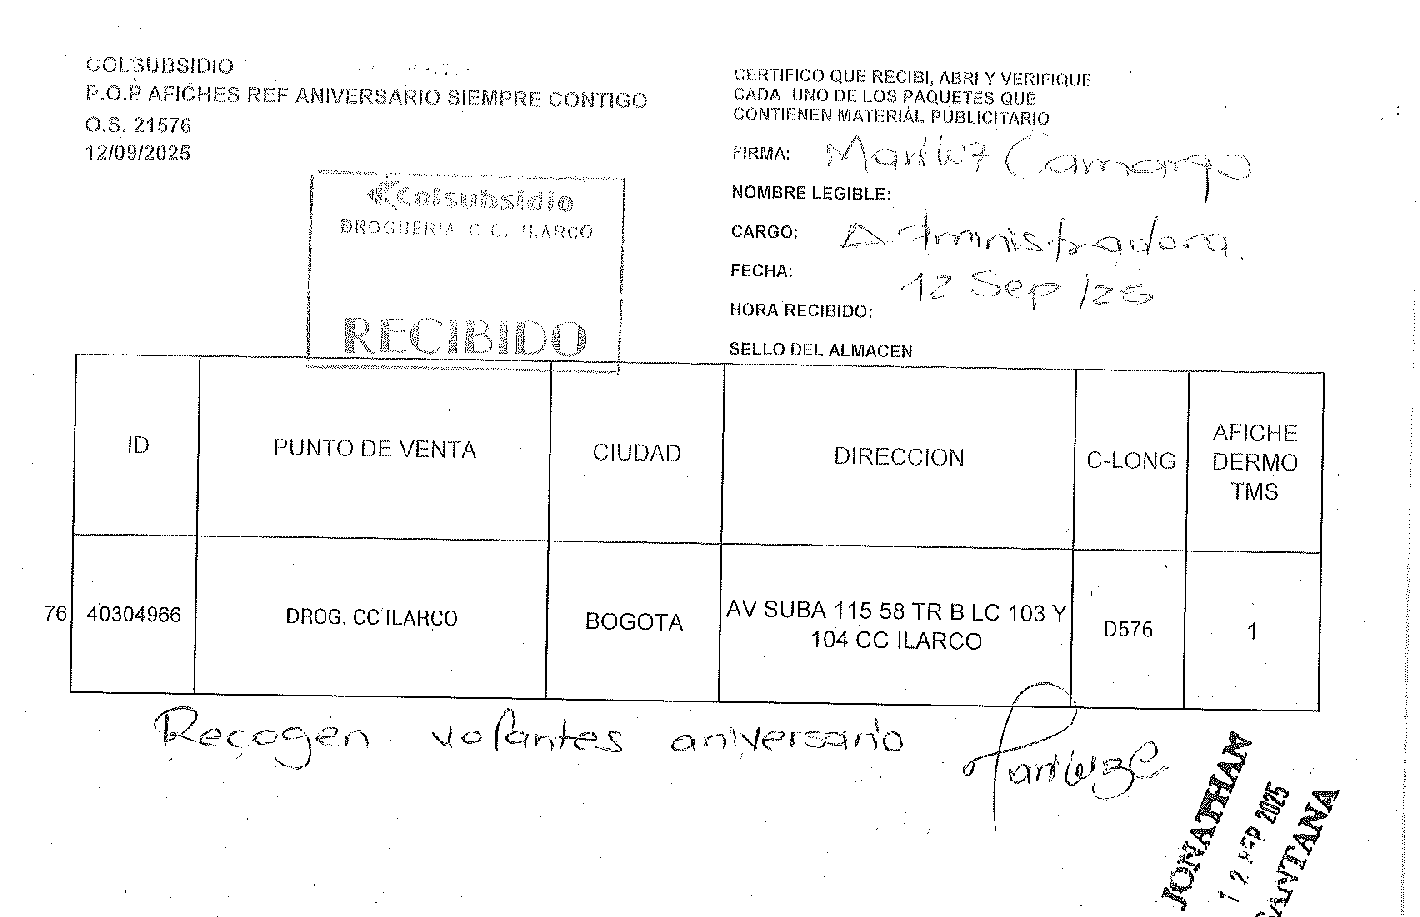 COLSUBSIDIO
P.O.P AFICHES REF ANIVERSARIO SIEMPRE CONTIGO
O.S. 21576
12/09/2025
CERTIFICO QUE RECIBI, ABRI Y VERIFIQUE
CADA UNO DE LOS PAQUETES QUE
CONTIENEN MATERIAL PUBLICITARIO
FIRMA: Mariluz Camargo
NOMBRE LEGIBLE:
CARGO: Administradora.
FECHA: 12 Sep /25
HORA RECIBIDO:
SELLO DEL ALMACEN
Colsubsidio
DROGUERIA C.C. ILARCO
RECIBIDO
ID PUNTO DE VENTA CIUDAD DIRECCION C-LONG AFICHE DERMO TMS
76 40304966 DROG. CC ILARCO BOGOTA AV SUBA 115 58 TR B LC 103 Y 104 CC ILARCO D576 1
Recogen volantes aniversario
JONATHAN
12 SEP 2025
SANTANA